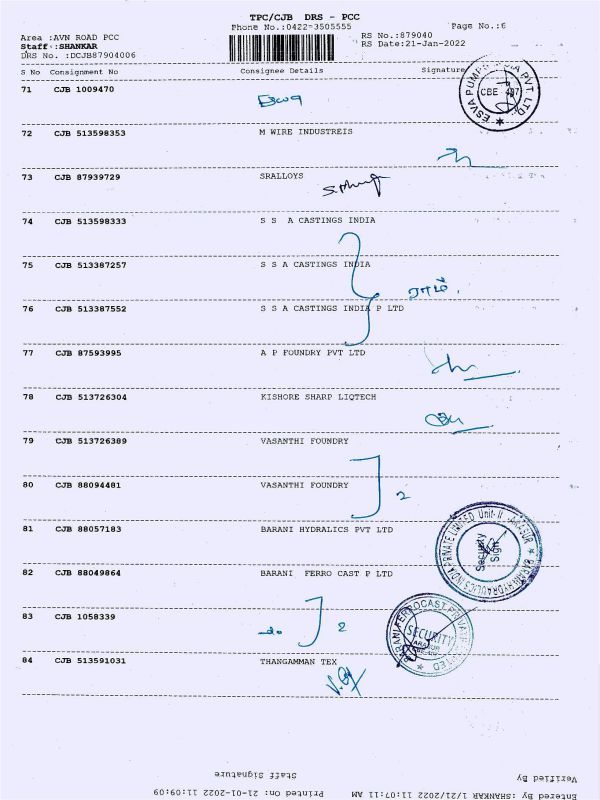 TPC/CJB DRS - PCC
Phone No.:0422-3505555
Page No.:6
Area :AVN ROAD PCC
RS No.:879040
Staff :SHANKAR
RS Date:21-Jan-2022
DRS No. :DCJB87904006
S No Consignment No Consignee Details Signature
71 CJB 1009470
ESVA PUMPS INDIA PVT. LTD
CBE
72 CJB 513598353 M WIRE INDUSTREIS
73 CJB 87939729 SRALLOYS
74 CJB 513598333 S S A CASTINGS INDIA
75 CJB 513387257 S S A CASTINGS INDIA
76 CJB 513387552 S S A CASTINGS INDIA P LTD
77 CJB 87593995 A P FOUNDRY PVT LTD
78 CJB 513726304 KISHORE SHARP LIQTECH
79 CJB 513726389 VASANTHI FOUNDRY
80 CJB 88094481 VASANTHI FOUNDRY
2
81 CJB 88057183 BARANI HYDRALICS PVT LTD
BARANI HYDRAULICS INDIA PRIVATE LIMITED Unit-II ARASUR
Security
Sign
82 CJB 88049864 BARANI FERRO CAST P LTD
83 CJB 1058339
do 2
BARANI FERROCAST PRIVATE LIMITED
SECURITY
ARASUR
84 CJB 513591031 THANGAMMAN TEX
Staff Signature
Verified By
Printed On: 21-01-2022 11:09:09
Entered By :SHANKAR 1/21/2022 11:07:11 AM